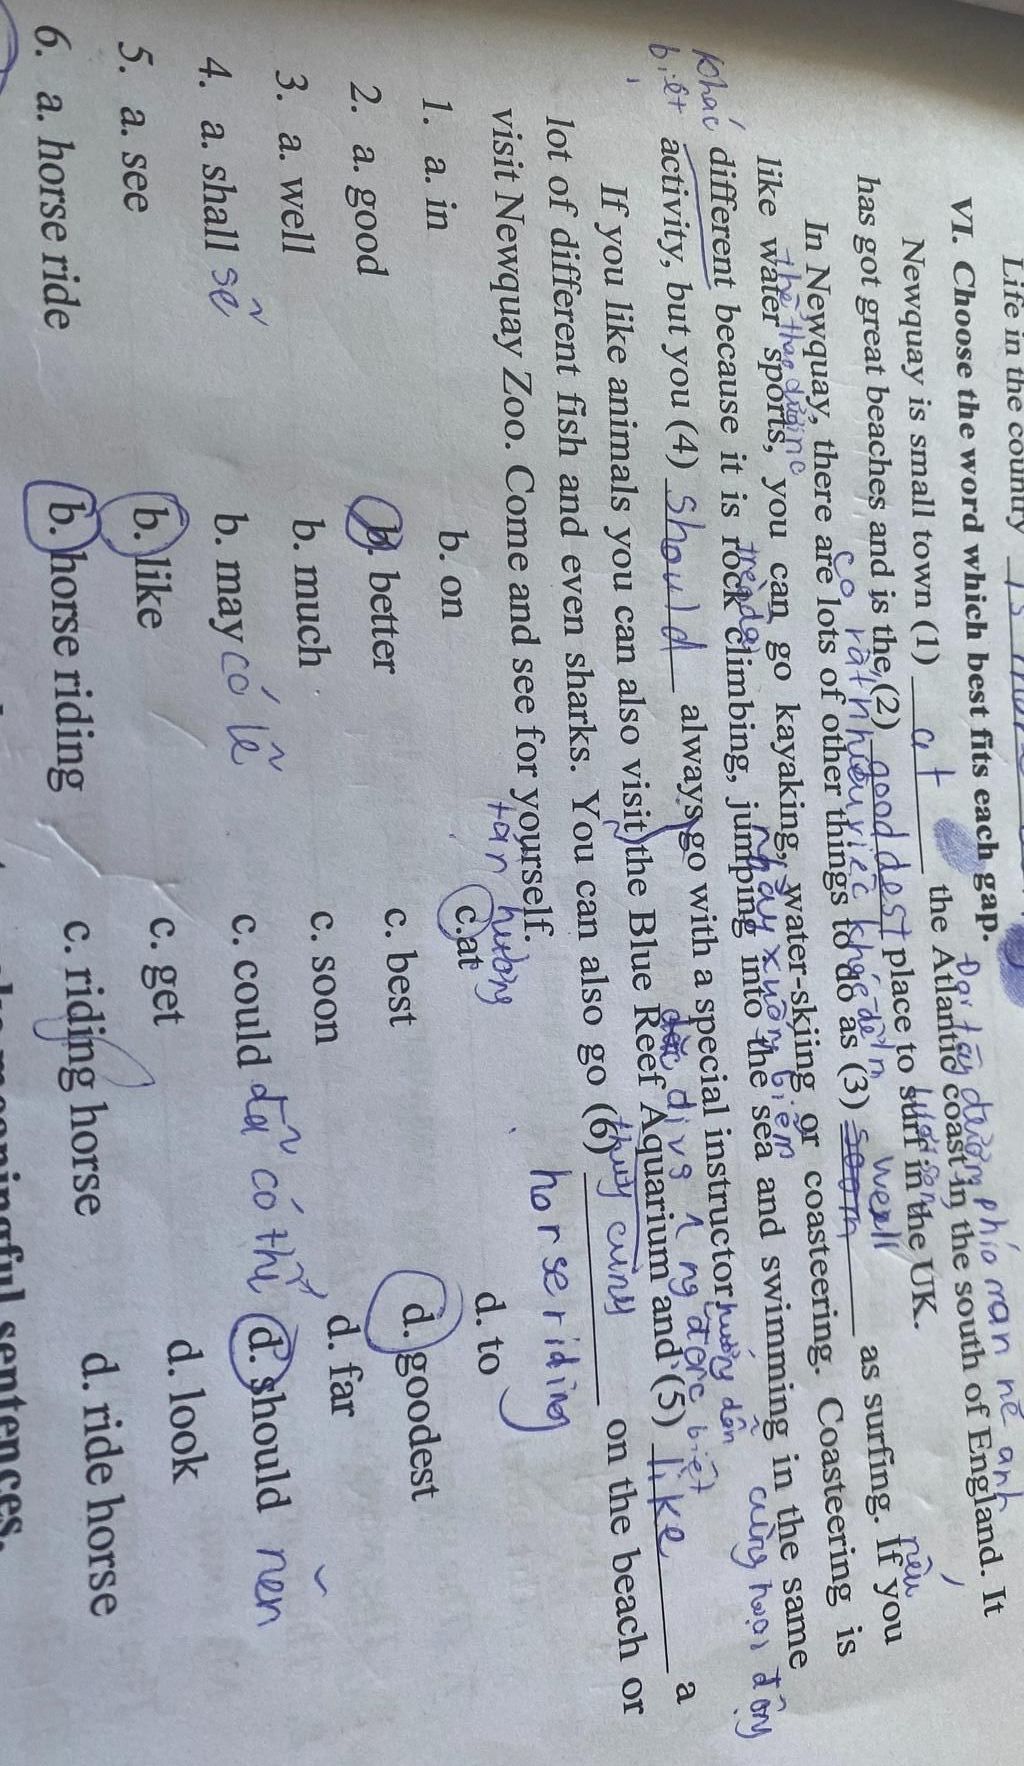 Life in the country is
VI. Choose the word which best fits each gap.
Newquay is small town (1) at the Atlantic coast in the south of England. It
has got great beaches and is the (2) gooddest place to surf in the UK.
có rất nhiều việc khác để làm
well
nếu
In Newquay, there are lots of other things to do as (3) soon as surfing. If you
thể thao dưới nước
like water sports, you can go kayaking, water-skiing or coasteering. Coasteering is
khác
nhảy xuống biển
cùng hoạt động
different because it is rock climbing, jumping into the sea and swimming in the same
biệt
hướng dẫn
activity, but you (4) should always go with a special instructor.
If you like animals you can also visit the Blue Reef Aquarium and (5) like a
thuỷ cung
lot of different fish and even sharks. You can also go (6) on the beach or
horse riding
visit Newquay Zoo. Come and see for yourself.
tận hưởng
1. a. in b. on c. at d. to
2. a. good b. better c. best d. goodest
3. a. well b. much c. soon d. far
4. a. shall sẽ b. may có lẽ c. could đã có thể d. should nên
5. a. see b. like c. get d. look
6. a. horse ride b. horse riding c. riding horse d. ride horse
meaningful sentences.